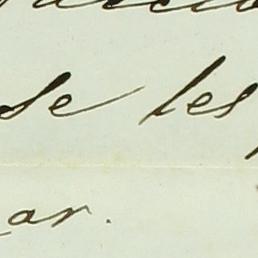 se les
ar.